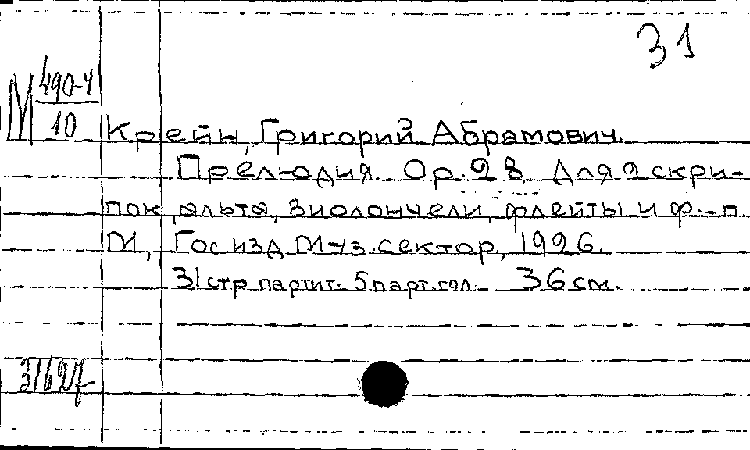 31
М 490-4
10
Крейн, Григорий Абрамович.
Прелюдия. Op. 28. Для 2 скри-
пок, альта, виолончели, флейты и ф.-п.
М., Госизд. Муз. сектор, 1926.
31 стр. партит. 5 парт. гол. 36 см.